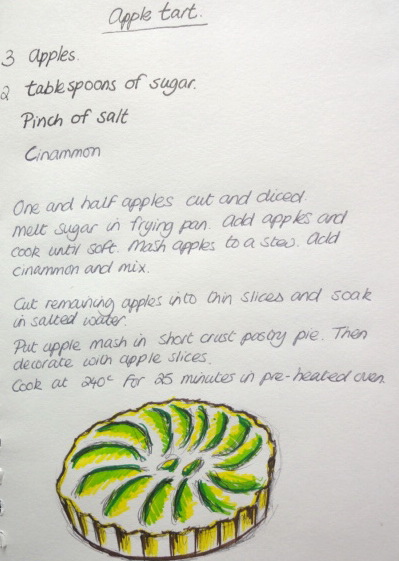 Apple tart.
3 apples.
2 tablespoons of sugar.
Pinch of salt
Cinammon
One and half apples cut and diced.
melt sugar in frying pan. Add apples and
cook until soft. Mash apples to a stew. Add
cinammon and mix.
Cut remaining apples into thin slices and soak
in salted water.
Put apple mash in short crust pastry pie. Then
decorate with apple slices.
Cook at 240c for 25 minutes in pre-heated oven.